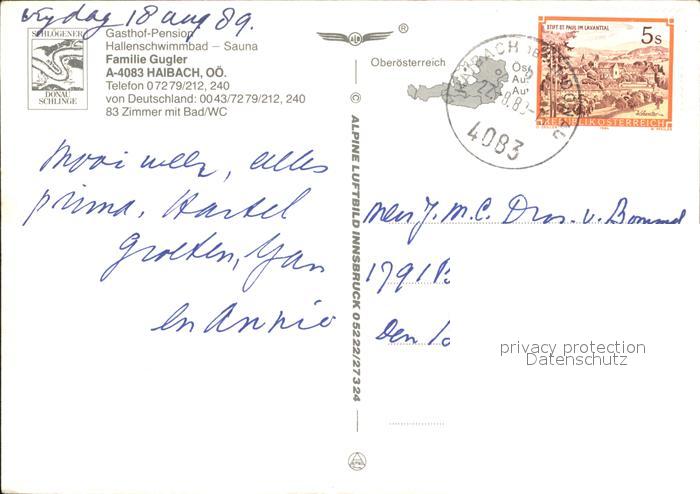 vrydag 18 aug 89.
SCHLÖGENER
DONAU
SCHLINGE
Gasthof-Pension
Hallenschwimmbad – Sauna
Familie Gugler
A-4083 HAIBACH, OÖ.
Telefon 0 72 79/212, 240
von Deutschland: 00 43/72 79/212, 240
83 Zimmer mit Bad/WC
Mooi weer, alles
prima. Hartel
Groeten, Jan
en Annie
®
Oberösterreich
© ALPINE LUFTBILD INNSBRUCK 05222/27324
STIFT ST. PAUL IM LAVANTTAL
5s
REPUBLIK ÖSTERREICH
HAIBACH
4083
Mevr J. M. C. Dros. v. Bommel
1791
Den
privacy protection
Datenschutz